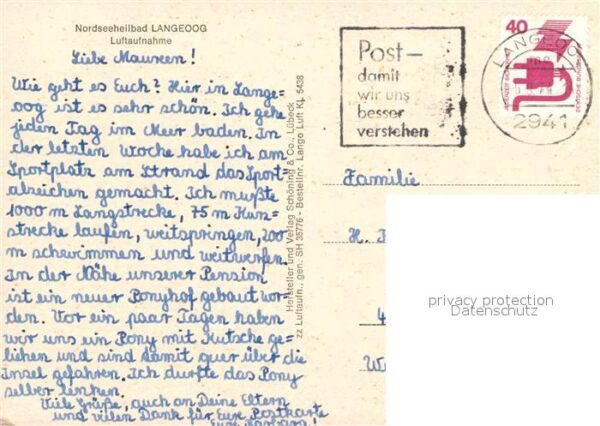 Nordseeheilbad LANGEOOG
Luftaufnahme
Liebe Maureen!
Wie geht es Euch? Hier in Lange=
oog ist es sehr schön. Ich gehe
jeden Tag im Meer baden. In
der letzten Woche habe ich am
Sportplatz am Strand das Sport=
abzeichen gemacht. Ich mußte
1000 m Langstrecke, 75 m Kurz=
strecke laufen, weitspringen, 200
m schwimmen und weitwerfen.
In der Nähe unserer Pension
ist ein neuer Ponyhof gebaut wor=
den. Vor ein paar Tagen haben
wir uns ein Pony mit Kutsche ge=
liehen und sind damit quer über die
Insel gefahren. Ich durfte das Pony
selber lenken.
Viele Grüße, auch an Deine Eltern
und vielen Dank für Eure Postkarte
Eure Barbara!
Hersteller und Verlag Schöning & Co., Lübeck
zz Luftaufn., gen. SH 35776 - Bestellnr. Lango Luft KL 5438
Post–
damit
wir uns
besser
verstehen
40
DEUTSCHE BUNDESPOST
LANGEOOG
2941
Familie
H.
4
W
privacy protection
Datenschutz